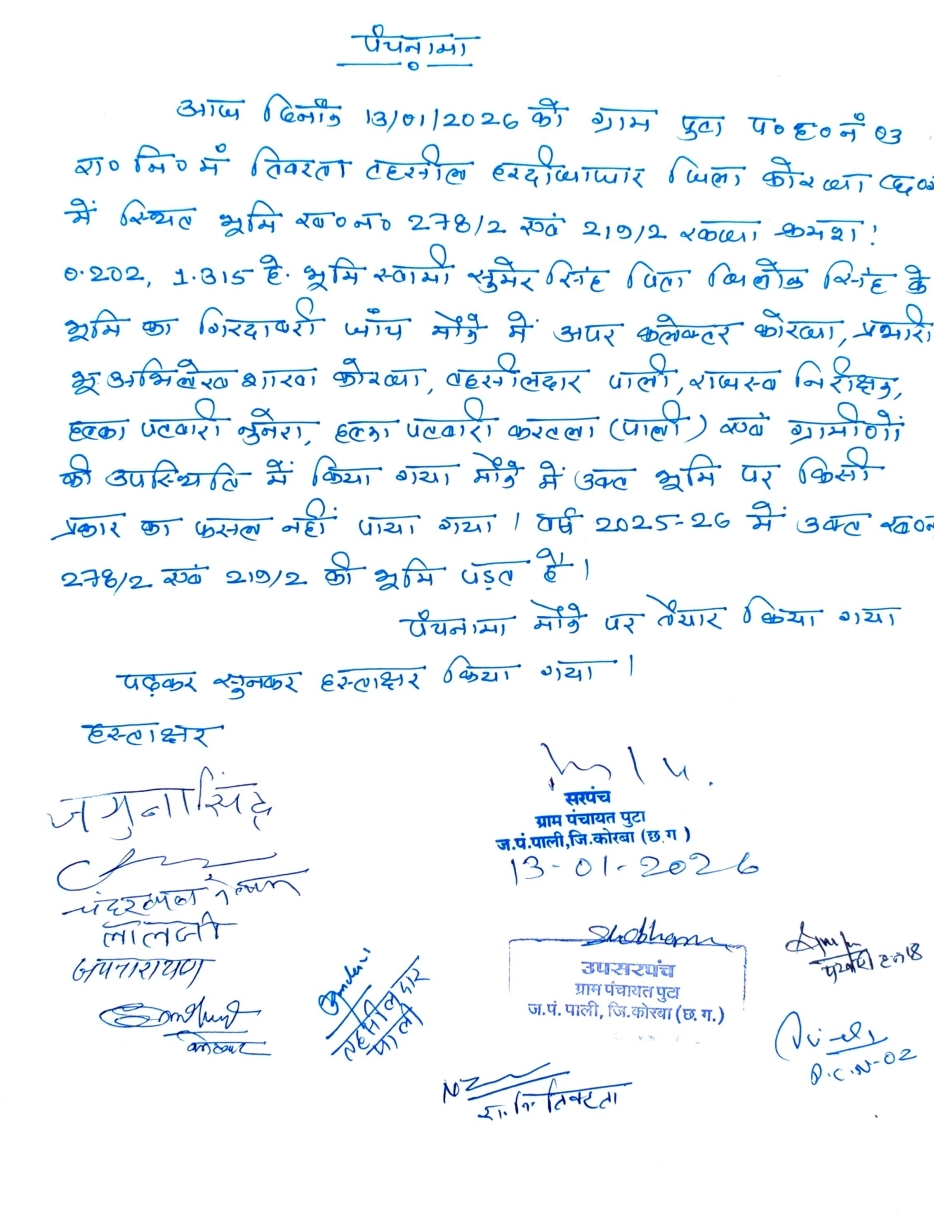 पंचनामा
आज दिनाँक 13/01/2026 को ग्राम पुटा प०ह०नं 03
रा०नि०मं तिवरता तहसील हरदीबाजार जिला कोरबा छ०ग
में स्थित भूमि ख०न० 278/2 एवं 219/2 रकबा क्रमश:
0.202, 1.315 हे. भूमि स्वामी सुमेर सिंह पिता त्रिलोक सिंह के
भूमि का गिरदावरी जाँच मौके में अपर कलेक्टर कोरबा, प्रभारी
भू-अभिलेख शाखा कोरबा, तहसीलदार पाली, राजस्व निरीक्षक,
हल्का पटवारी नुनेरा, हल्का पटवारी करतला (पाली) एवं ग्रामीणों
की उपस्थिति में किया गया मौके में उक्त भूमि पर किसी
प्रकार का फसल नहीं पाया गया । वर्ष 2025-26 में उक्त ख०न०
278/2 एवं 219/2 की भूमि पड़त है ।
पंचनामा मौके पर तैयार किया गया
पढ़कर सुनकर हस्ताक्षर किया गया ।
हस्ताक्षर
जमुनासिंह
सरपंच
ग्राम पंचायत पुटा
ज.पं.पाली,जि.कोरबा (छ.ग )
13-01-2026
लालजी
जयनारायण
Shobham
उपसरपंच
ग्राम पंचायत पुटा
ज.पं. पाली, जि.कोरबा (छ.ग.)
तहसीलदार
पाली
कोटवार
P.C.N-02
रा.नि. तिवरता